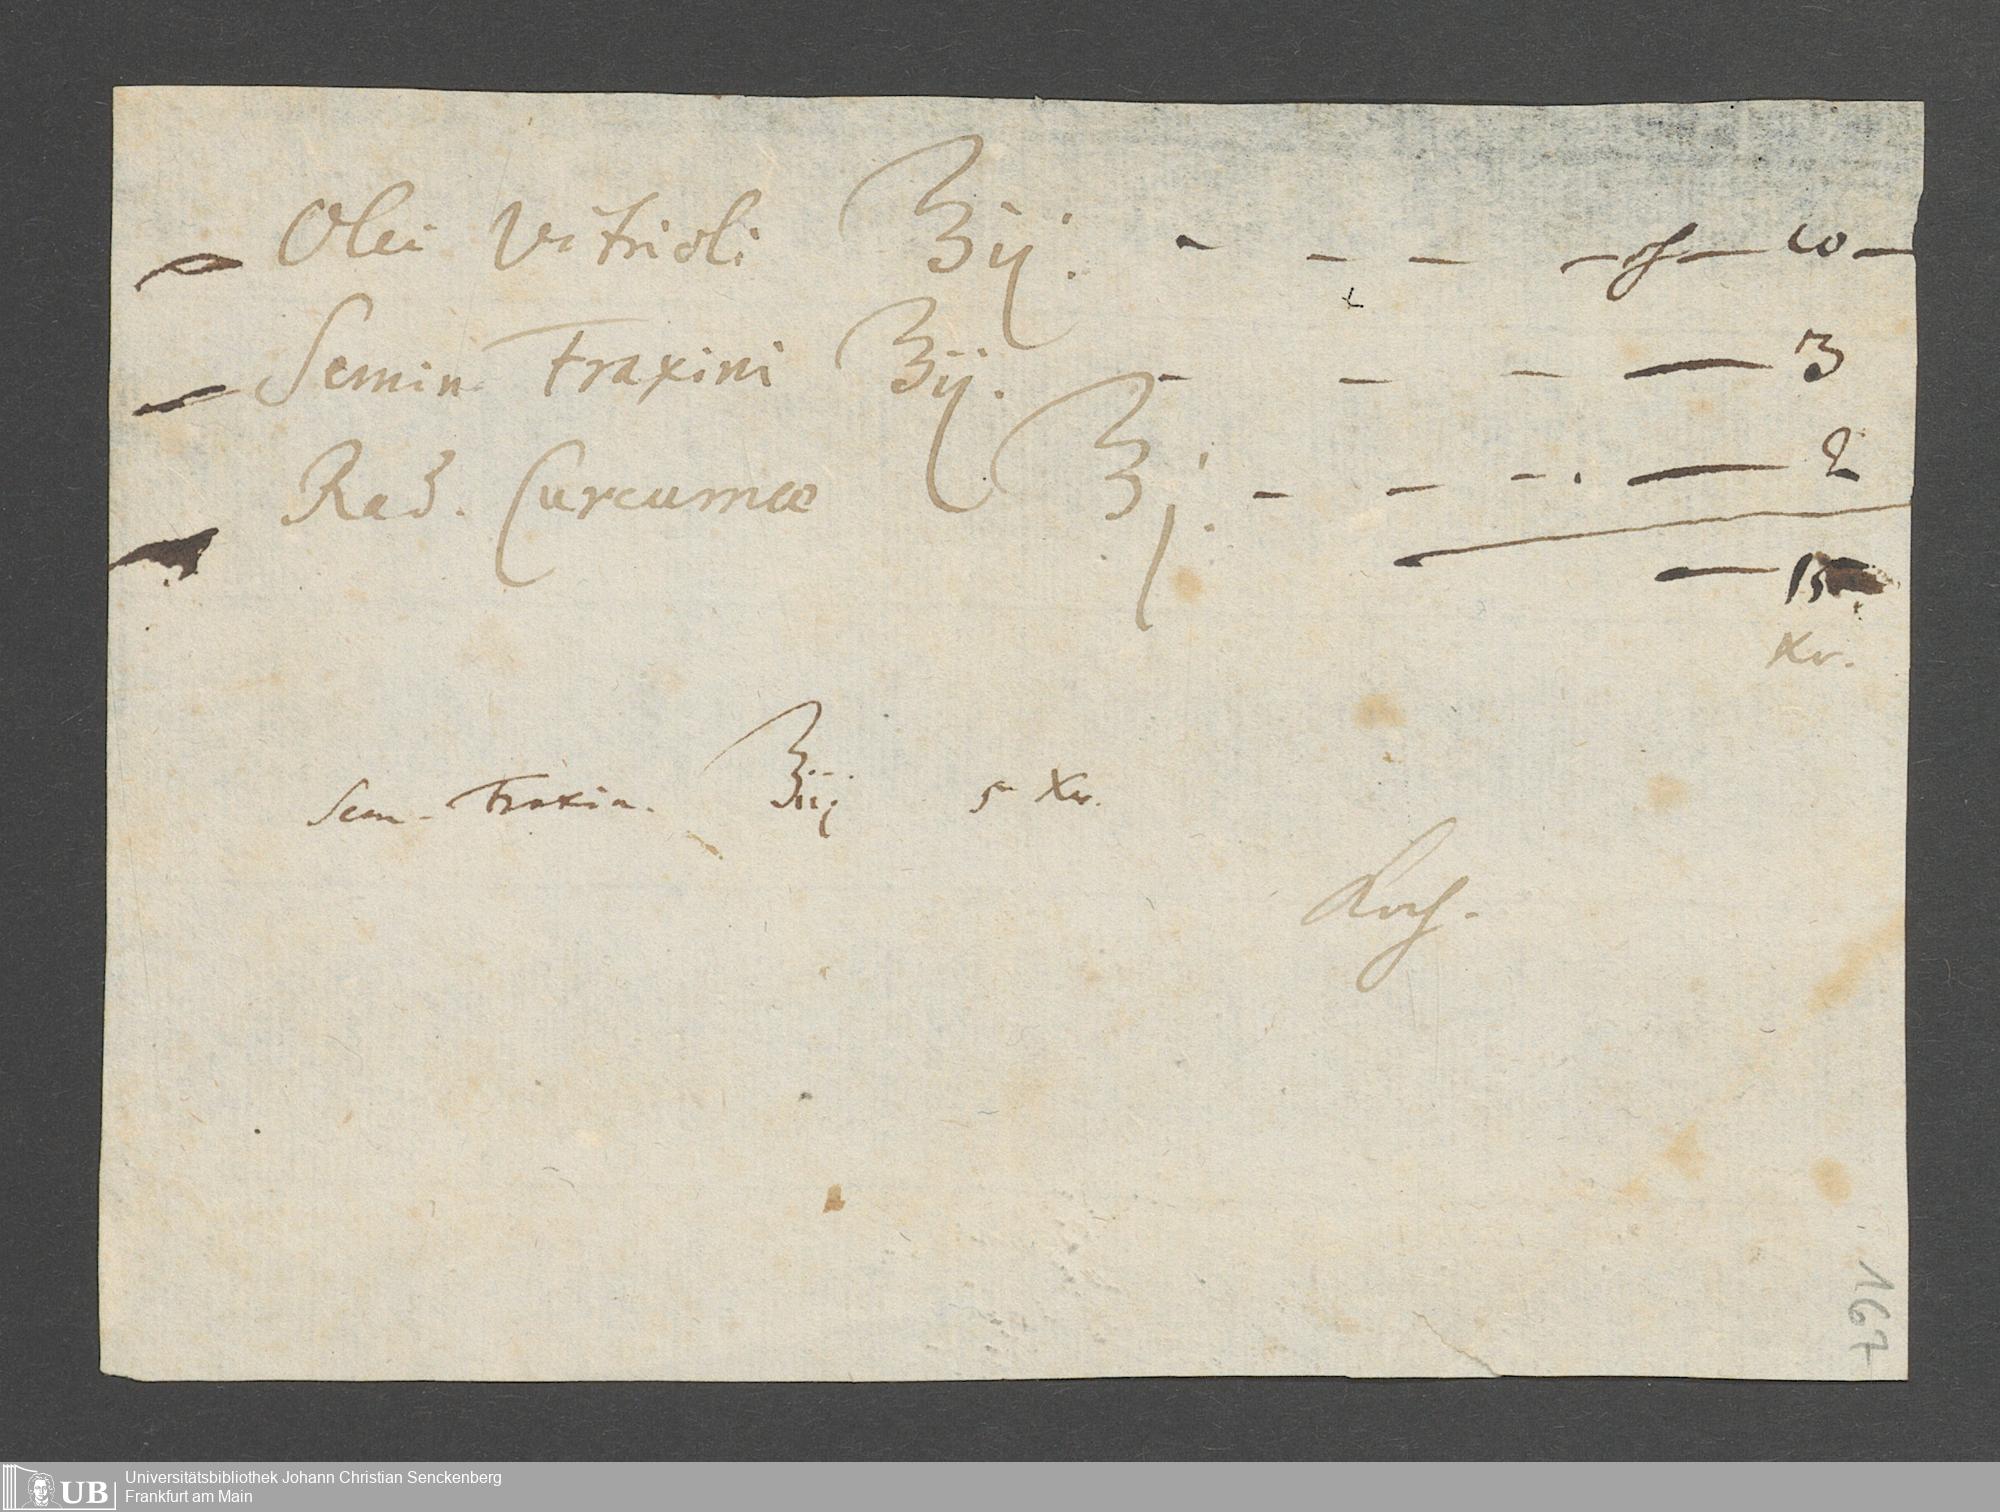 Olei Vitrioli ℥ij. - - - - ƒ - 10 -
Semin Fraxini ℥ij. - - - - 3
Rad. Curcumæ ℥j. - - - . - 2
- 15
Xr.
Sem. Fraxin. ℥iij 5 Xr.
Koch.
167
UB Universitätsbibliothek Johann Christian Senckenberg
Frankfurt am Main